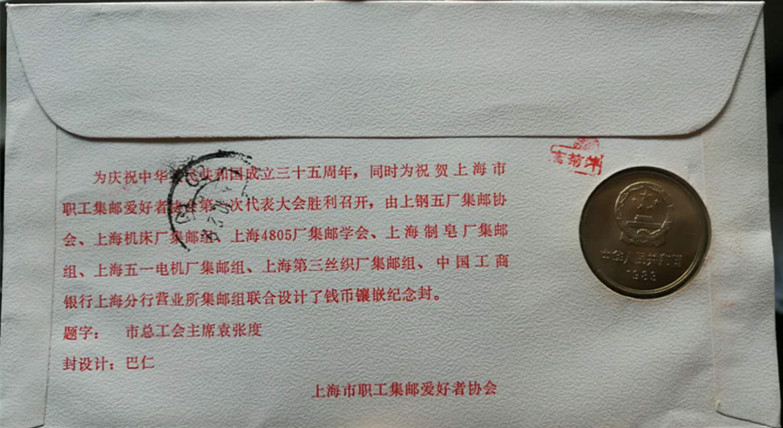 为庆祝中华人民共和国成立三十五周年，同时为祝贺上海市
职工集邮爱好者协会第一次代表大会胜利召开，由上钢五厂集邮协
会、上海机床厂集邮组、上海4805厂集邮学会、上海制皂厂集邮
组、上海五一电机厂集邮组、上海第三丝织厂集邮组、中国工商
银行上海分行营业所集邮组联合设计了钱币镶嵌纪念封。
题字： 市总工会主席袁张度
封设计：巴仁
上海市职工集邮爱好者协会
中华人民共和国
1983